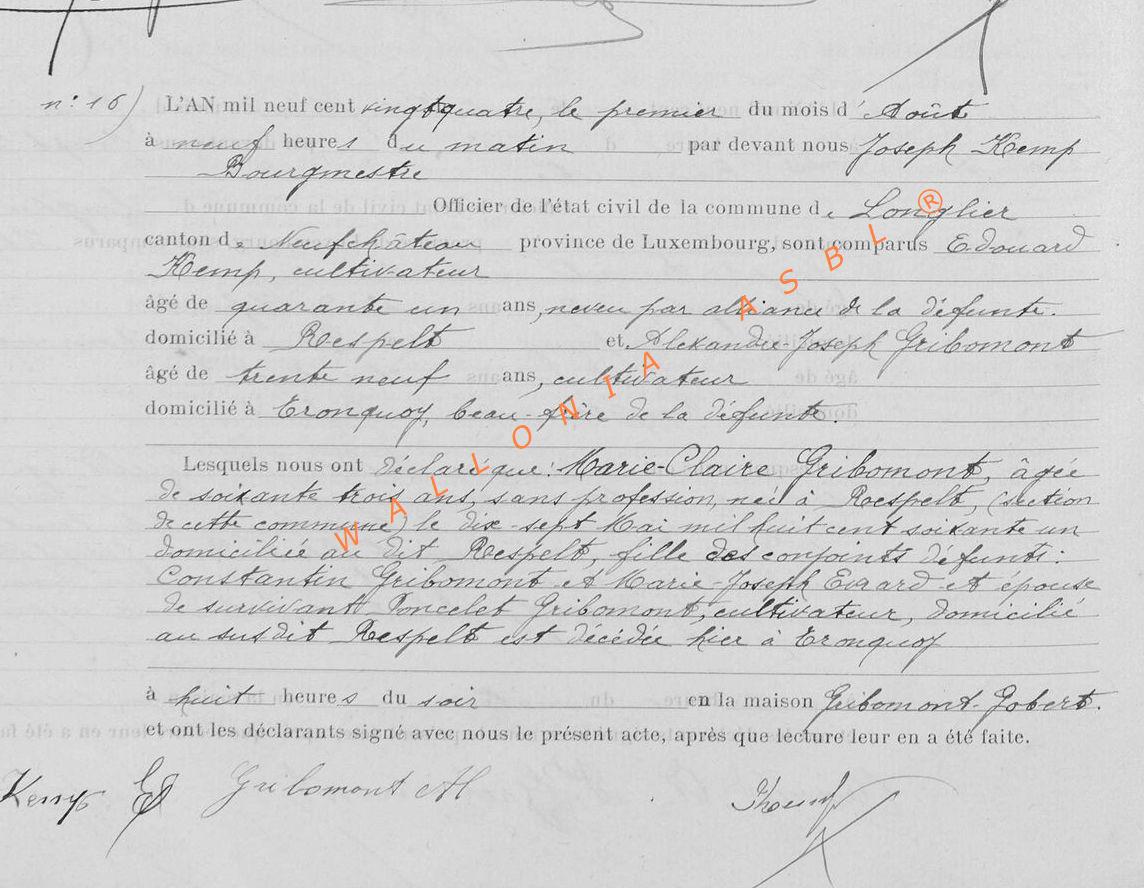 n: 16) L'AN mil neuf cent vingt quatre, le premier du mois d' Août
à neuf heures du matin par devant nous Joseph Kemp
Bourgmestre
Officier de l'état civil de la commune de Longlier
canton de Neufchâteau province de Luxembourg, sont comparus Edouard
Kemp, cultivateur
âgé de quarante un ans, neveu par alliance de la défunte.
domicilié à Respelt et Alexandre-Joseph Gribomont
âgé de trente neuf ans, cultivateur
domicilié à Tronquoy, beau-frère de la défunte.
Lesquels nous ont déclaré que: Marie-Claire Gribomont, âgée
de soixante trois ans, sans profession, née à Respelt, (section
de cette commune) le dix-sept Mai mil huit cent soixante un
domiciliée au dit Respelt, fille des conjoints défunts:
Constantin Gribomont et Marie-Joseph Evrard et épouse
de survivant Poncelet Gribomont, cultivateur, domicilié
au susdit Respelt est décédée hier à Tronquoy
à huit heures du soir en la maison Gribomont-Gobert.
et ont les déclarants signé avec nous le présent acte, après que lecture leur en a été faite.
Kemp Ed Gribomont Al JKemp
WALLONIA ASBL ®